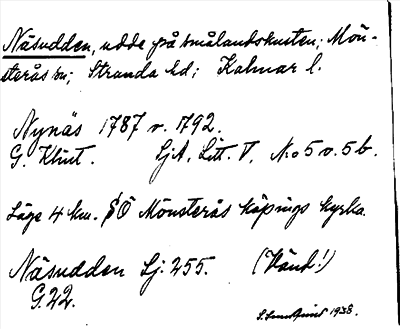 Näsudden, udde på Smålandskusten; Mön-
sterås sn; Stranda hd; Kalmar l.
Nynäs 1787 r. 1792.
G. Klint. SjA, Litt. V, No 5 o. 5 b.
Läge 4 km. SÖ Mönsterås köpings kyrka.
Näsudden Sj: 255. (Vänd!)
G. 22.
1938.